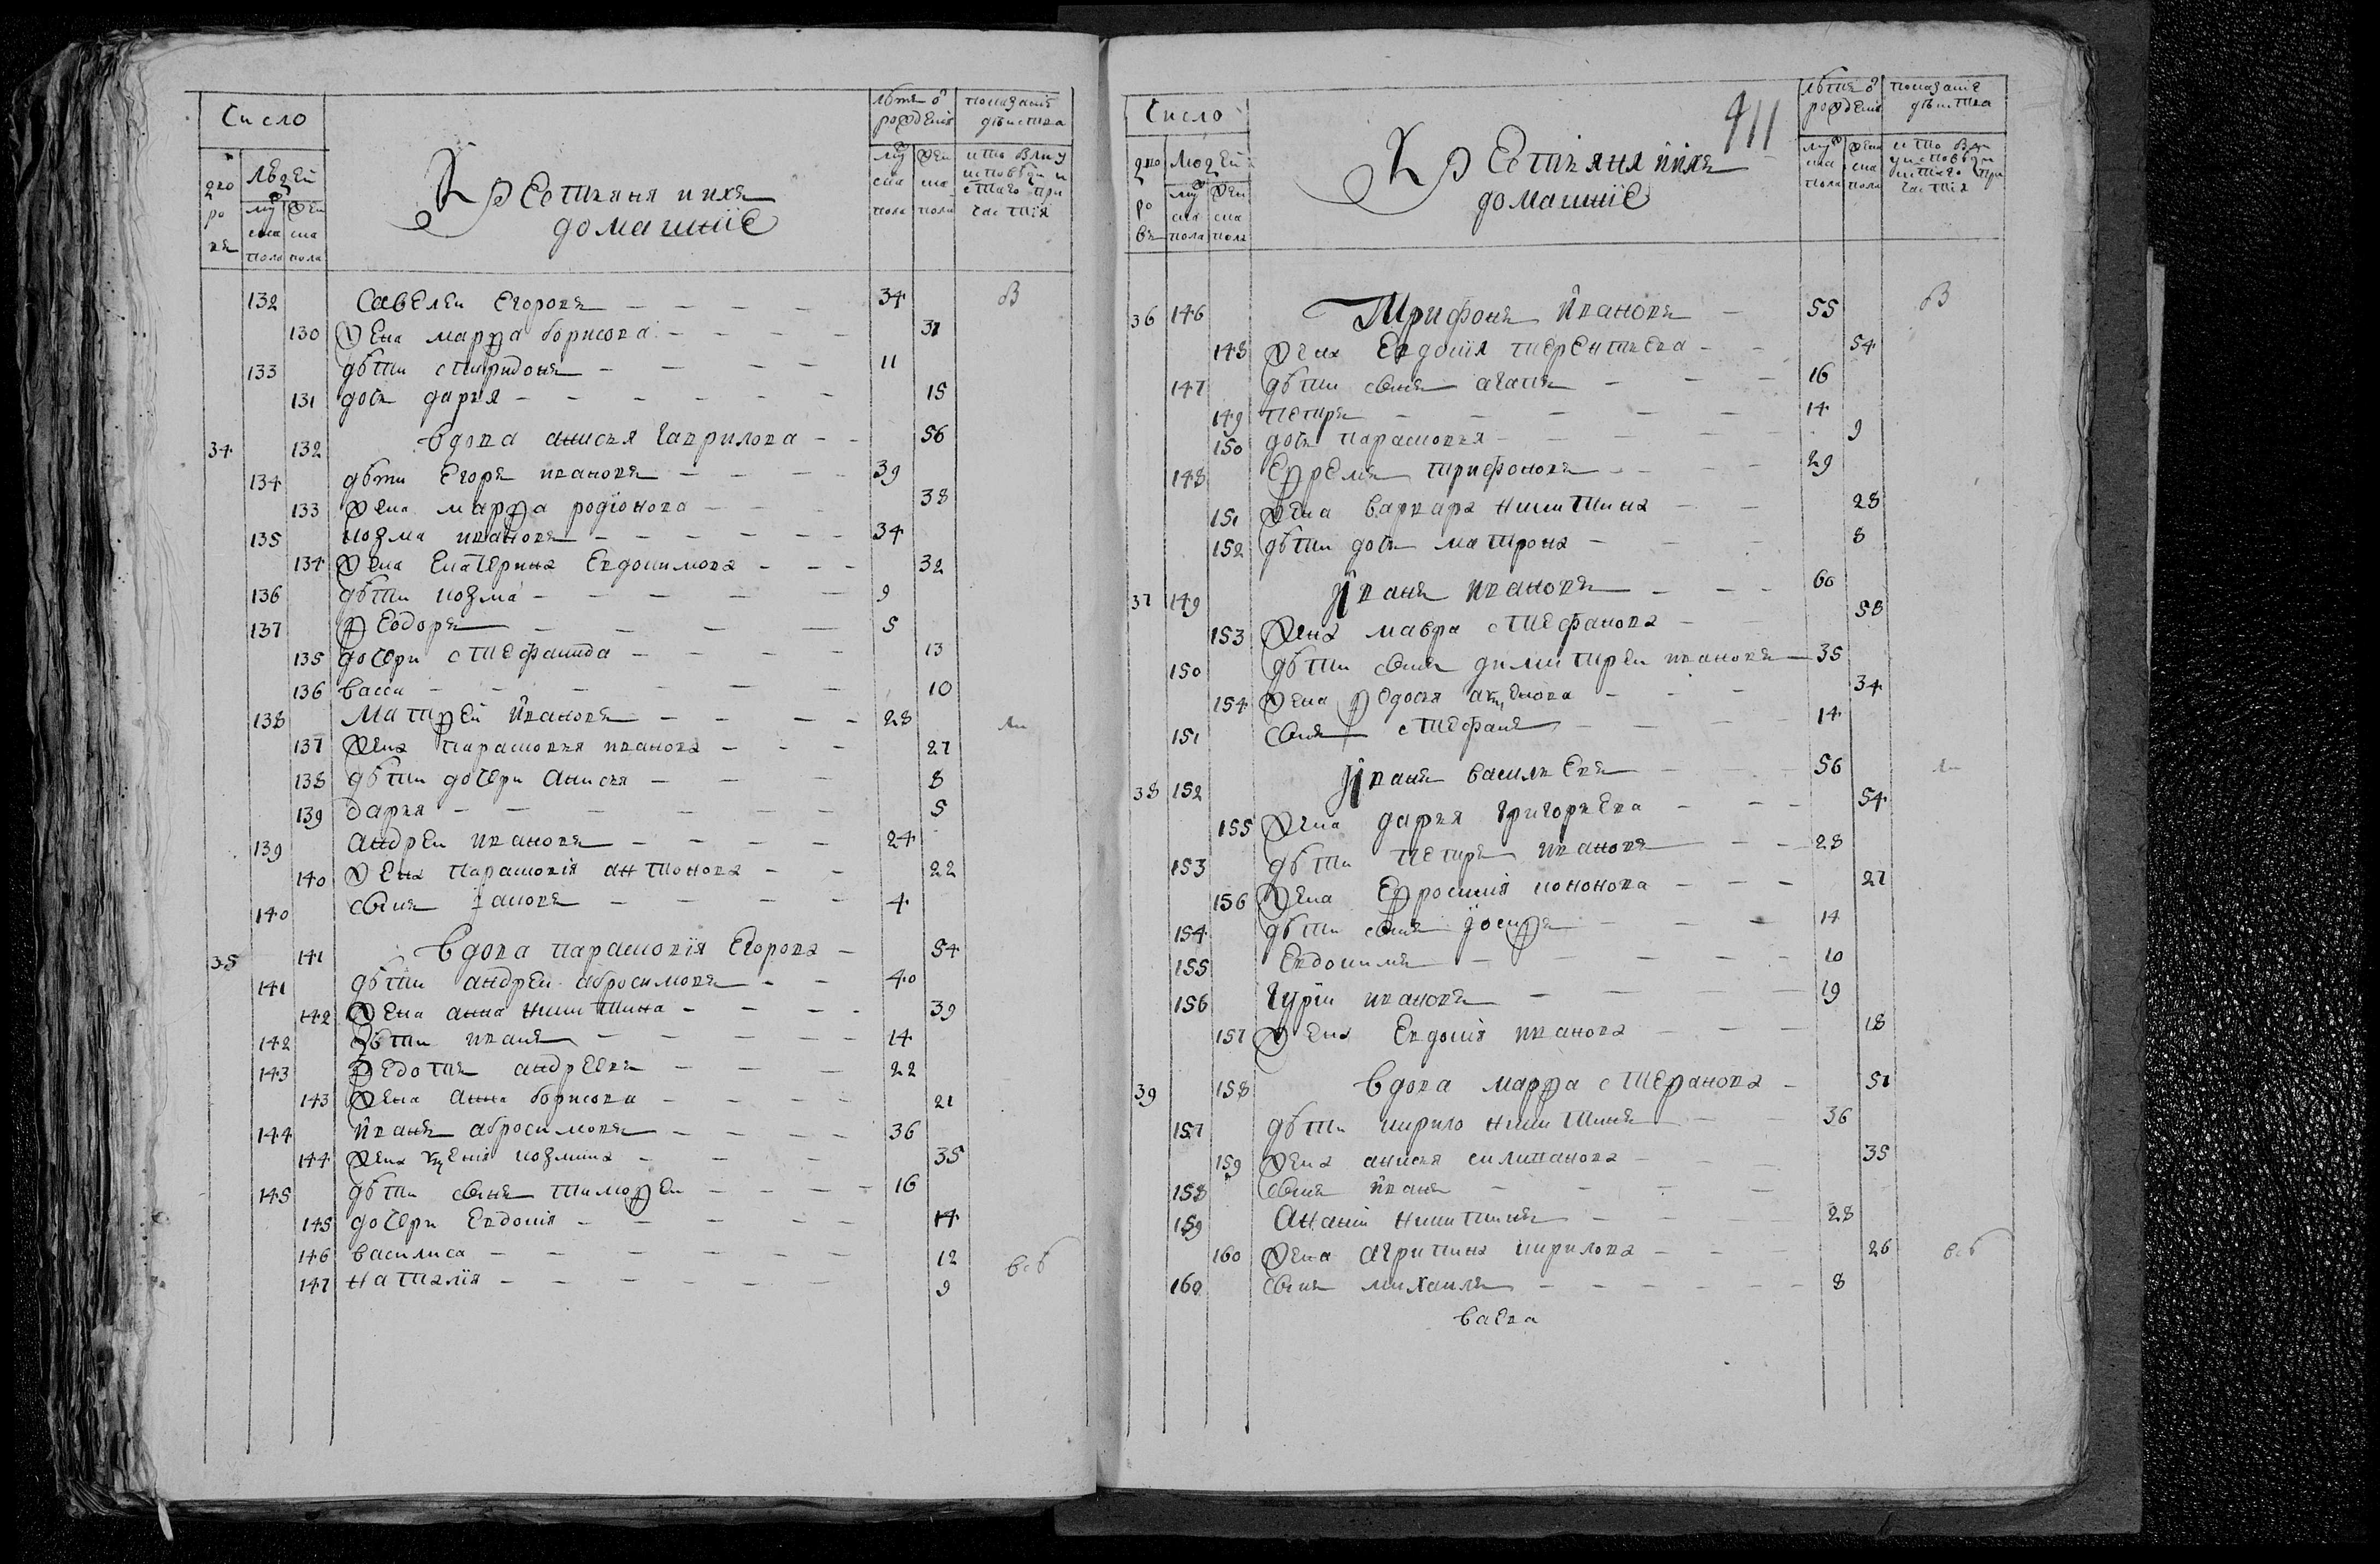 Число
Крестьяня ихъ
домашніе
лѣтъ ѿ рожденія
показаніе дѣйства
дворовъ
людей
муска пола
женска пола
муска пола
женска пола
кто былъ у исповѣди и святаго причастія
132 Савелеи Егоровъ 34 В
130 жена марѳа борисова 31
133 дѣти спиридонъ 11
131 дочь дарья 15
34 132 Вдова анисья Гаврилова 56
134 дѣти Егоръ ивановъ 39
133 жена марѳа родіонова 38
135 козма ивановъ 34
134 жена Екатерина Евдокимова 32
136 дѣти козма 9
137 Ѳеодоръ 5
135 дочери стефанида 13
136 васса 10
138 Матѳей ивановъ 28 ли
137 жена парасковья иванова 27
138 дѣти дочери Анисья 8
139 дарья 5
139 Андреи ивановъ 24
140 жена парасковія антонова 22
140 сынъ іаковъ 4
35 141 Вдова парасковія Егорова 54
141 дѣти андреи абросимовъ 40
142 жена анна никитина 39
142 дѣти иванъ 14
143 Ѳедотъ андреевъ 22
143 жена Анна борисова 21
144 иванъ абросимовъ 36
144 жена ксенія козмина 35
145 дѣти сынъ тимоѳеи 16
145 дочери Евдокія 14
146 василиса 12
147 наталія 9
всѣ
Число
411
Крестьяня ихъ
домашніе
лѣтъ ѿ рожденія
показаніе дѣйства
дворовъ
людей
муска пола
женска пола
муска пола
женска пола
кто былъ у исповѣди и святаго причастія
36 146 Трифонъ Ивановъ 55 В
148 жена Евдокія терентьева 54
147 дѣти сынъ агапъ 16
149 петръ 14
150 дочь парасковья 9
148 Ефремъ трифоновъ 29
151 жена варвара никитина 28
152 дѣти дочь матрона 8
37 149 Іванъ ивановъ 60
153 жена мавра стефанова 58
150 дѣти сынъ димитреи ивановъ 35
154 жена Ѳедосья 34
151 сынъ стефанъ 14
38 152 Іванъ васильевъ 56 ли
155 жена дарья григорьева 54
153 дѣти петръ ивановъ 28
156 жена Ефросинія кононова 27
154 дѣти сынъ іосифъ 14
155 Евдокимъ 10
156 Гурій ивановъ 19
157 жена Евдокія иванова 18
39 158 Вдова марѳа стефанова 51
157 дѣти кирило никитинъ 36
159 жена анисья силиванова 35
158 сынъ иванъ
159 Ананій никитинъ 28
160 жена агрипина кирилова 26 всѣ
160 сынъ михаилъ 8
ваева